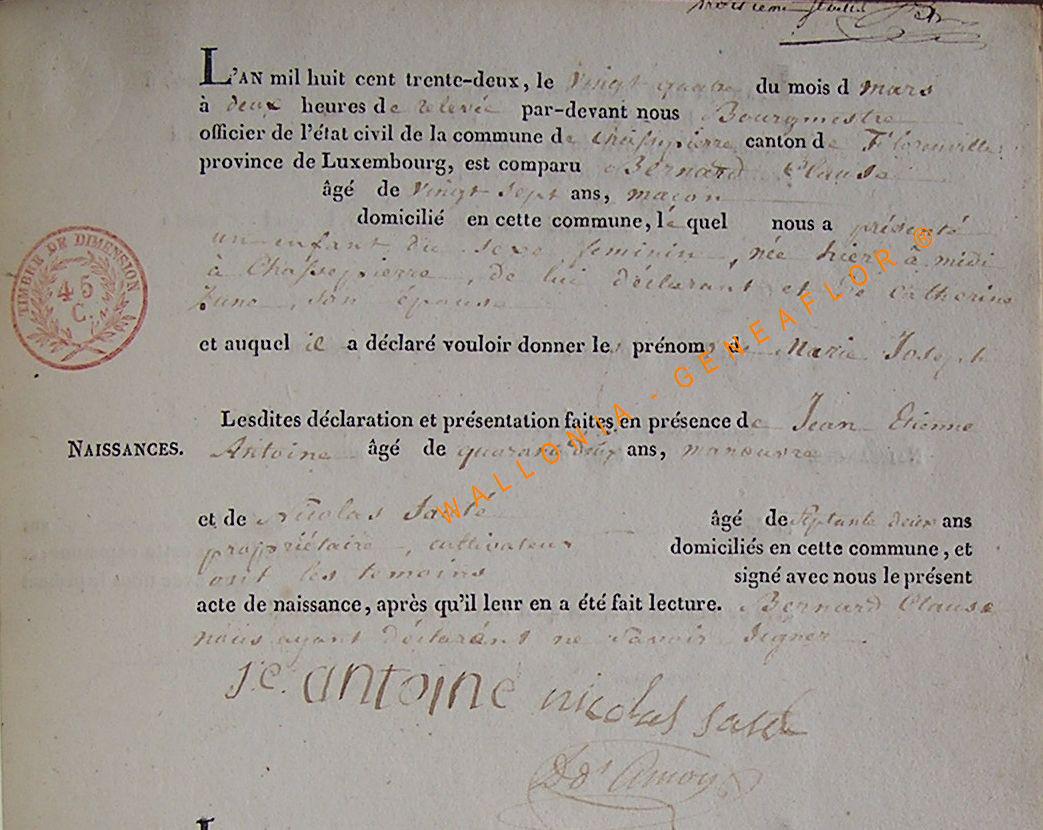 troisieme feuillet
L'AN mil huit cent trente-deux, le vingt quatre du mois d mars
à deux heures de relevée par-devant nous Bourgmestre
officier de l'état civil de la commune de Chassepierre canton de Florenville
province de Luxembourg, est comparu Bernard Clause
âgé de vingt sept ans, maçon
domicilié en cette commune, lequel nous a présenté
un enfant du sexe feminin, née hier à midi
à Chassepierre, de lui déclarant et de Catherine
son épouse
et auquel il a déclaré vouloir donner les prénoms de Marie Joseph
Lesdites déclaration et présentation faites en présence de Jean Etienne
NAISSANCES. Antoine âgé de quarante deux ans, manoeuvre
et de Nicolas âgé de septante deux ans
propriétaire, cultivateur domiciliés en cette commune, et
ont les temoins signé avec nous le présent
acte de naissance, après qu'il leur en a été fait lecture. Bernard Clause
nous ayant déclaré ne savoir signer.
j.e. antoine nicolas
TIMBRE DE DIMENSION
46
C.
WALLONIA - GENEAFLOR ®